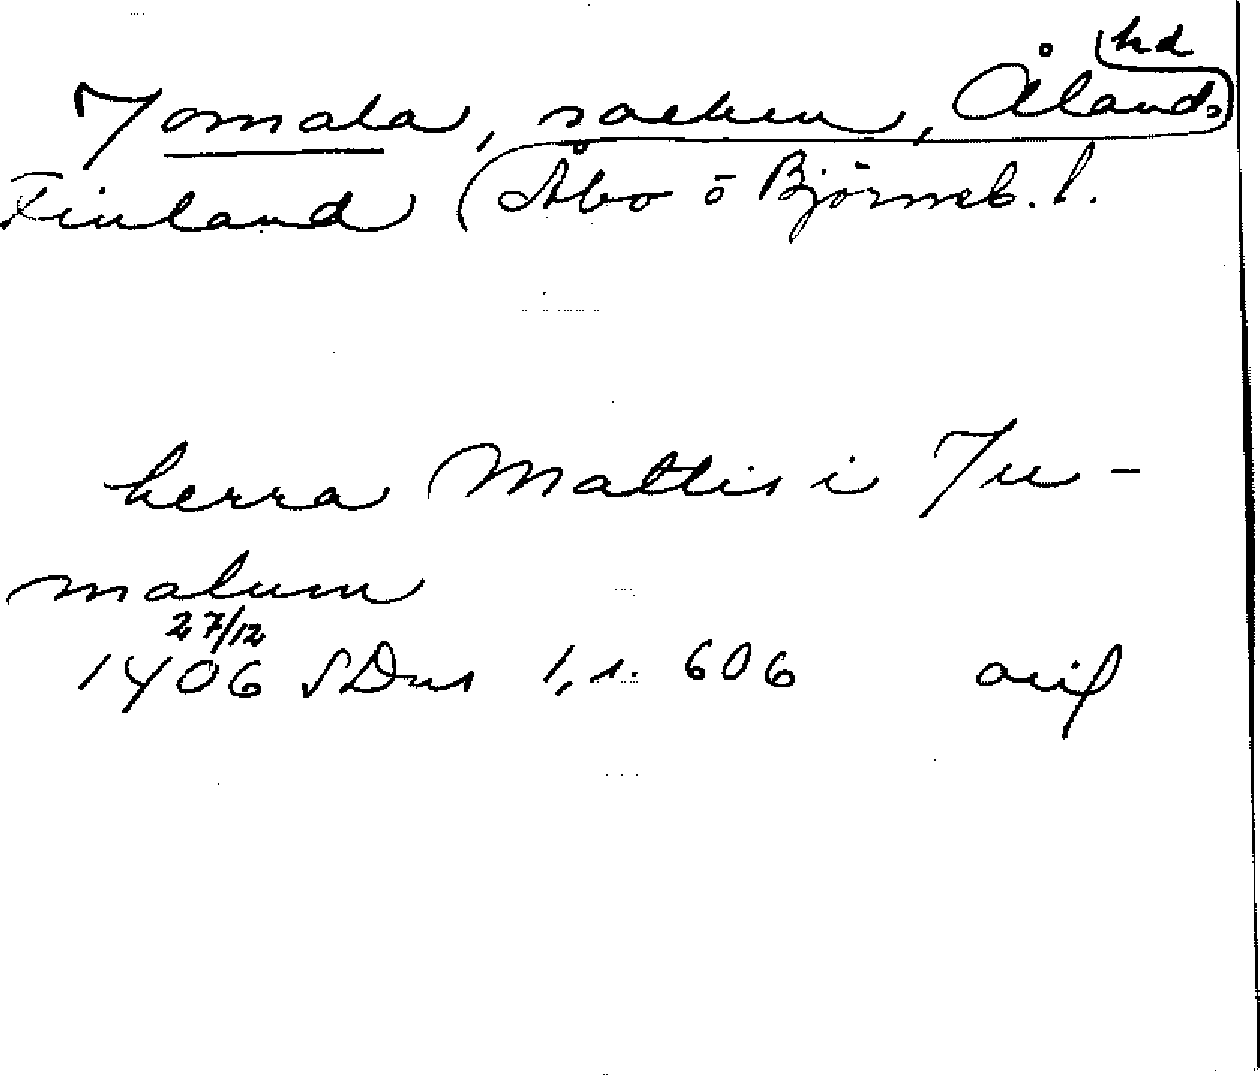 hd
Jomala, socken, Ålands
Finland (Åbo o Björneb. l.
herra Mattis i Ju-
malum
27/12
1406 SDns 1, s. 606 orig